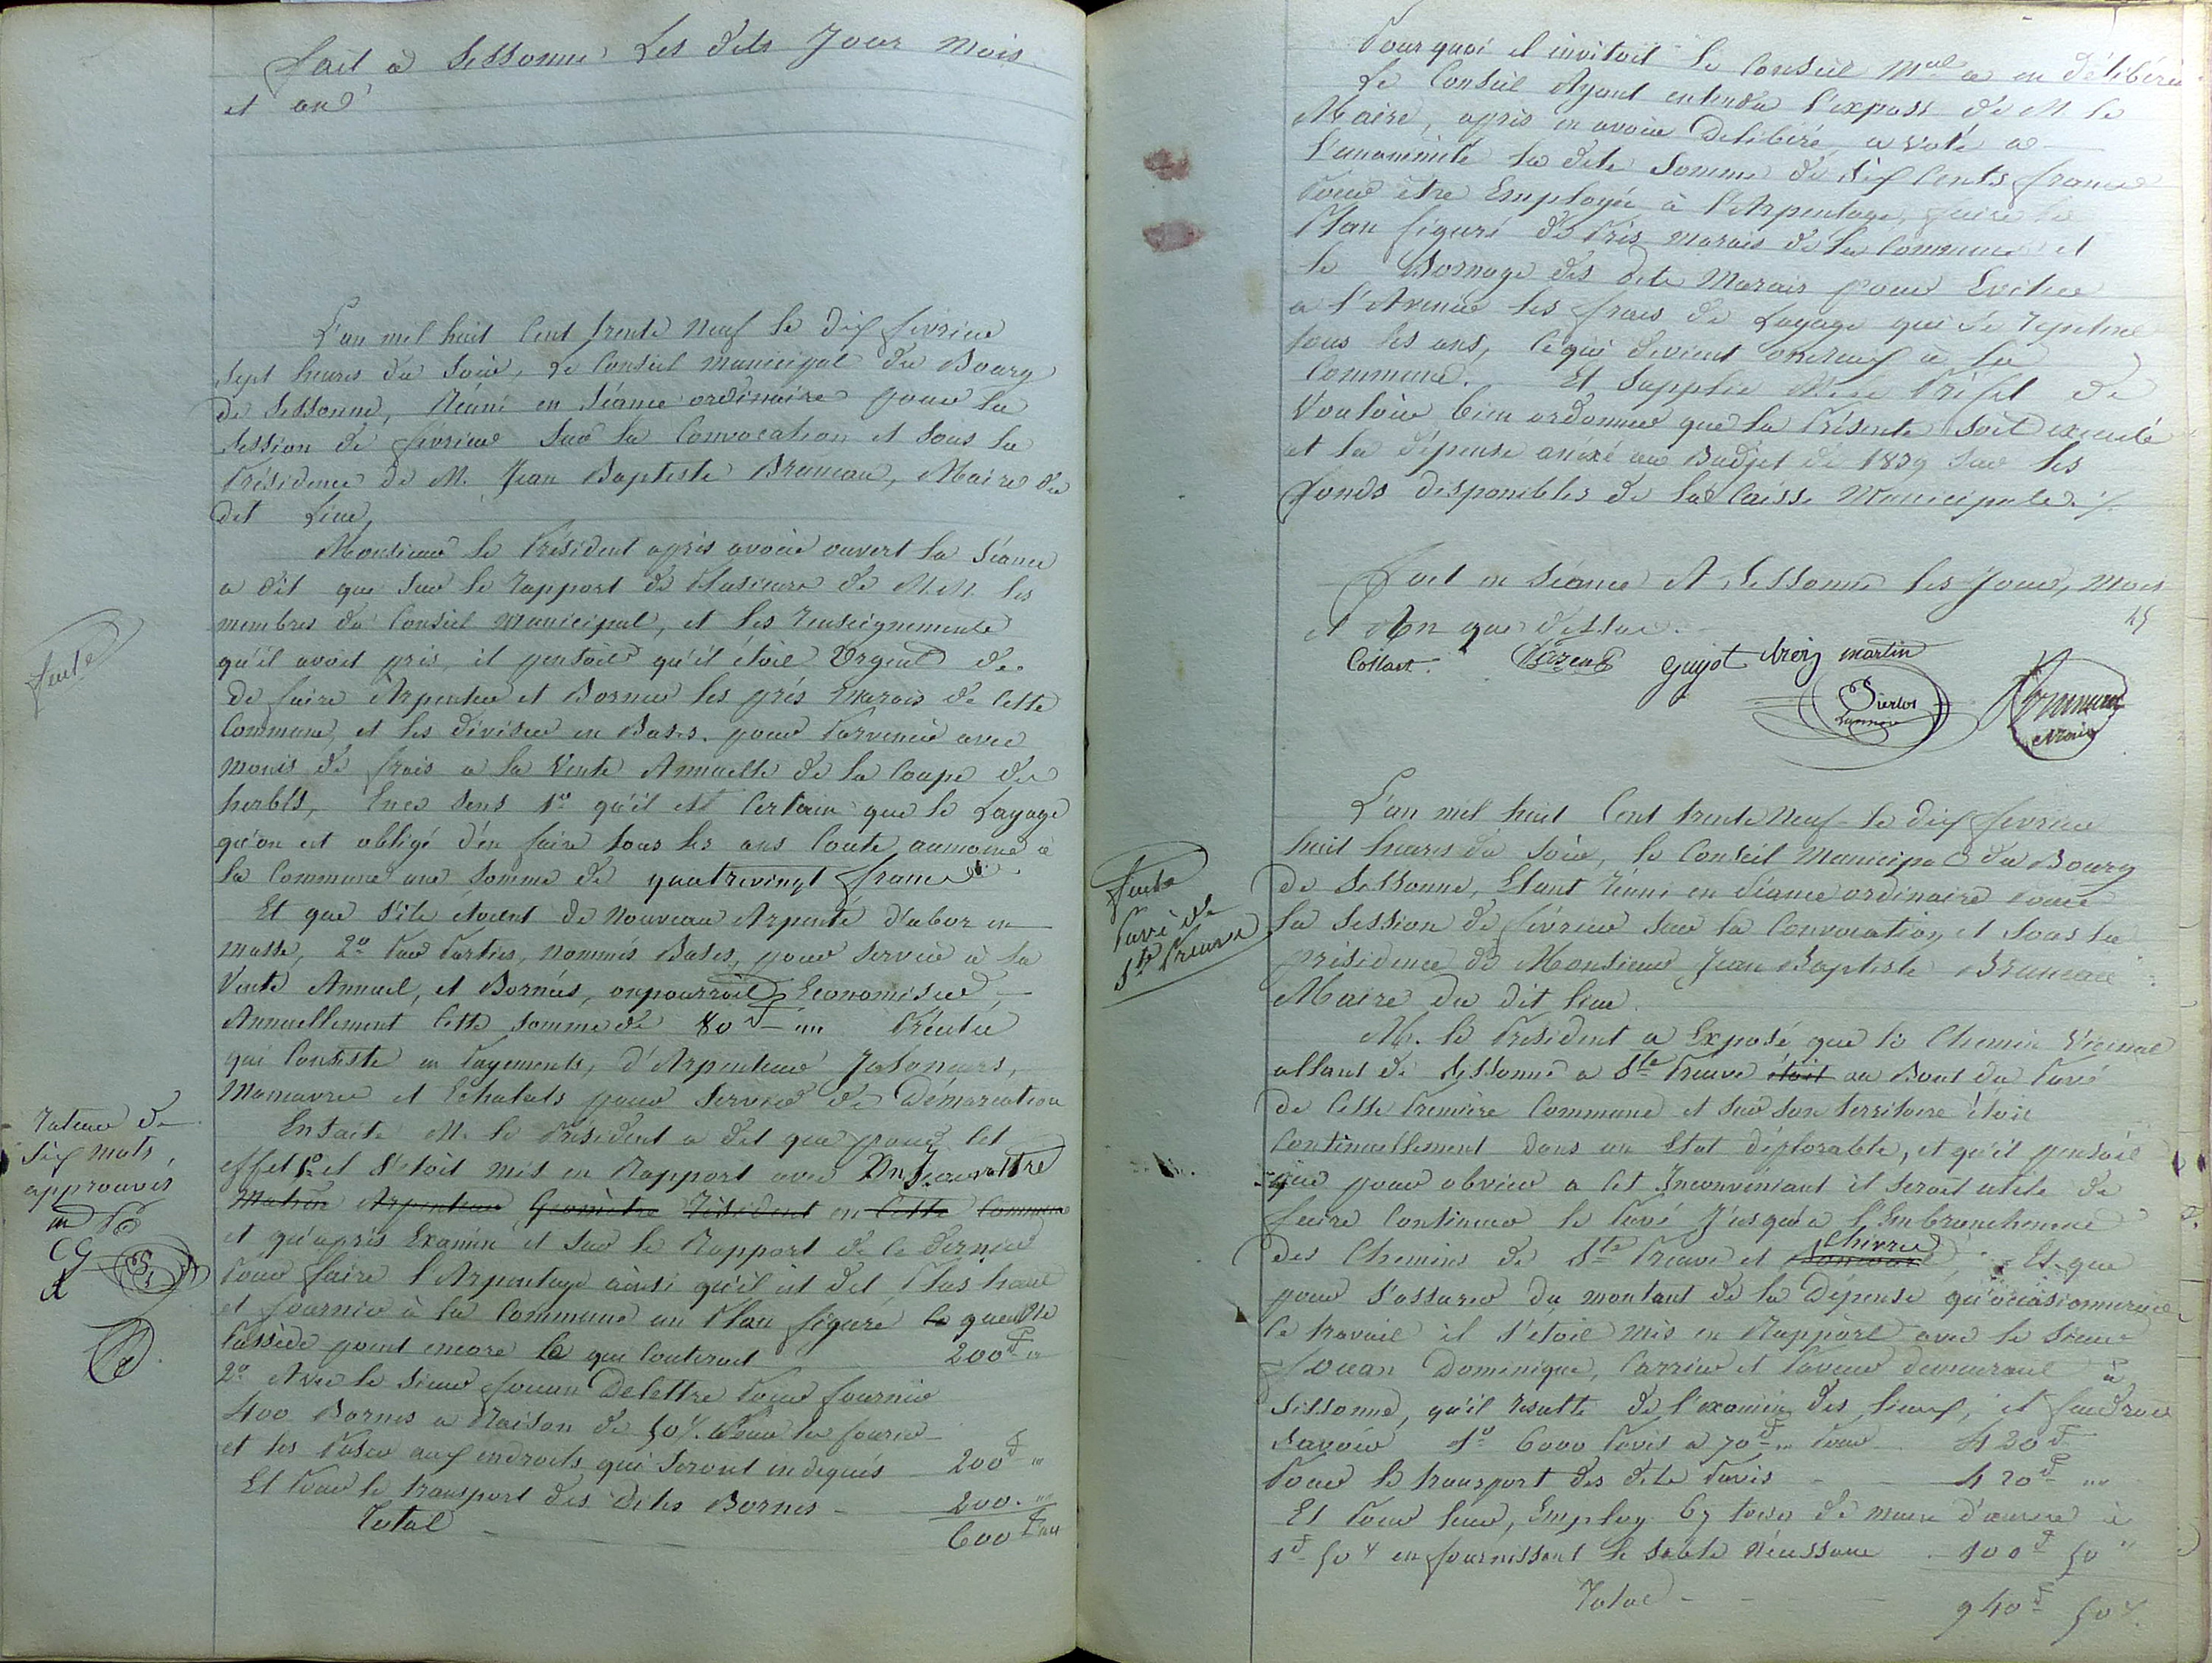 fait à Sissonne Les dits Jour mois
et an
L'an mil huit Cent trente Neuf le dix fevrier
sept heures du Soir, Le Conseil municipal du Bourg
de Sissonne, Réuni en Séance ordinaire pour la
Session de fevrier Sur la Convocation et Sous la
Présidence de M. Jean Baptiste Bruneau, Maire du
dit Lieu,
Monsieur le Président après avoir ouvert la Séance
a dit que Sur le rapport de Plusieurs de M.M. les
membres du Conseil Municipal, et les renseignements
qu'il avoit pris, il pensoit qu'il étoit Urgent de
fait
de faire Arpenter et Borner les prés Marais de Cette
Commune, et les diviser en Bases. pour Parvenir avec
moins de frais a la Vente Annuelle de la Coupe des
herbes, En ce sens 1º qu'il est Certain que le Layage
qu'on est obligé d'en faire tous les ans Coute aumoins à
la Commune une Somme de quatrevingt francs.
Et que S'ils étoient de Nouveau Arpenté d'abor en
masse, 2º Par Parties, Nommés Bases, pour Servir à la
Vente Annuel, et Bornés, on pourroit Economiser,
Annuellement Cette Somme de 80 f "
qui Consiste en Payements, d'Arpenteur Jaloneurs,
Manœuvre et Echalats pour Servir de Démarcation
Rature de
dix mots,
approuvés
CG
Ensuite M. le Président a dit que pour Cet
effet 1º il S'étoit mis en Rapport avec Un
Arpenteur Géomètre Résident en Cette Commune
et qu'après Examin et Sur le Rapport de Ce dernier
Pour faire l'Arpentage ainsi qu'il est dit Plus haut
et fournir à la Commune un Plan figuré
Possède point encore la qui Couteroit 200 f "
2º Avec le Sieur Jouan Delettre Pour fournir
400 Bornes a Raison de 50 c.
et les Poser aux endroits qui Seront indiqués 200 f "
Et Pour le transport des dites Bornes 200. "
Total 600 f "
Pourquoi il invitoit le Conseil Mal a en délibérer
Le Conseil Ayant entendu l'exposé de M. le
Maire, après en avoir Deliberé, a voté a
l'unanimité la dite Somme de Six Cents francs
Pour être Employée à l'Arpentage, faire le
Plan figuré de Prés marais de la Commune et
le Bornage des dits Marais pour Eviter
a l'Avenir les frais de Layage qui Se repetent
tous les ans, Ce qui devient onereux à la
Commune. Et Supplie M. le Préfet de
Vouloir bien ordonner que la Présente Soit executé
et la dépense anéxé au Budjet de 1839 Sur les
fonds disponibles de la Caisse Municipale. /.
Fait en Séance A Sissonne les Jour, mois
et An que dessus.
Collart guyot martin
Pierlot
Bruneau
Maire
L'an mil huit Cent trente Neuf le dix fevrier
huit heures du Soir, le Conseil Municipal du Bourg
de Sissonne, Etant réuni en Séance ordinaire Pour
la Session de fevrier Sur la Convocation et Sous la
présidence de Monsieur Jean Baptiste Bruneau
Maire du dit lieu.
fait
Pavé de
Ste Preuve
M. le Président a Exposé que le Chemin Vicinal
allant de Sissonne a Ste Preuve étoit au Bout du Pavé
de Cette Première Commune et Sur Son territoire étoit
Continuellement dans un Etat déplorable, et qu'il pensoit
que pour obvier a Cet Inconvéniant il Seroit utile de
faire Continuer le Pavé J'usqu'a l'Embranchement
des Chemins de Ste Preuve et Chivres, Et que
pour S'assurer du montant de la Dépense qu'occasionneroit
Ce travail il S'étoit mis en Rapport avec le Sieur
Jouan Dominique, Carrier et Paveur demeurant à
Sissonne, qu'il resulte de l'examin des lieux, il faudroit
Savoir 1º 6000 Pavés a 70 f " Pour 420 f
Pour le transport des dits Pavés 420 f "
Et Pour leur, Employ 67 toises de main d'œuvre à
1 f 50 c en fournissant le Sable Nécessaire 100 f 50 "
Total 940 f 50 c